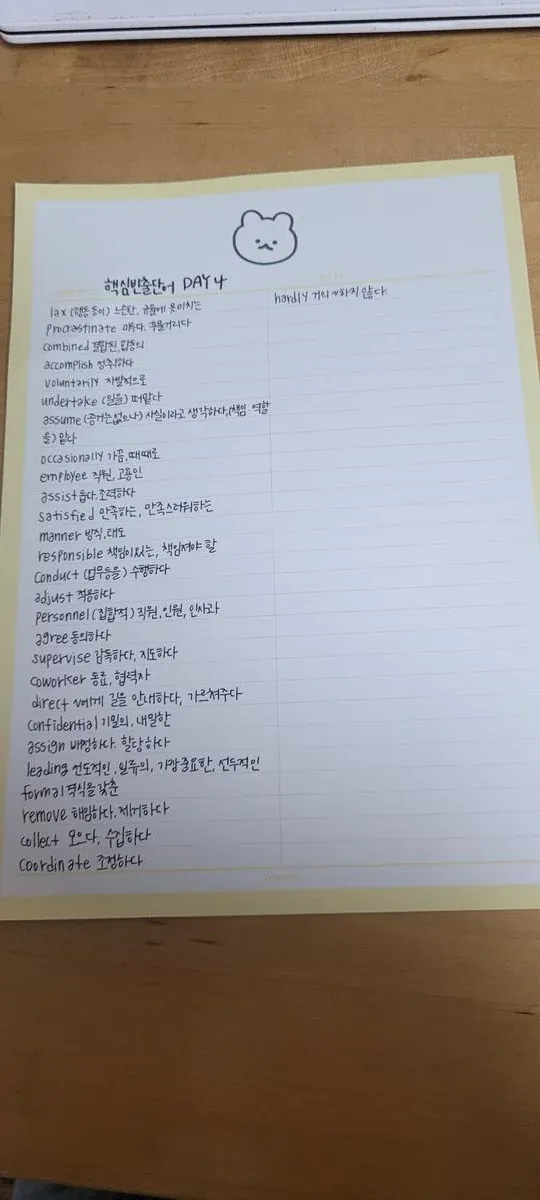 핵심빈출단어 DAY 4
lax (행동 등이) 느슨한, 규율에 못미치는
procrastinate 미루다, 꾸물거리다
combined 결합된, 합동의
accomplish 성취하다
voluntarily 자발적으로
undertake (일을) 떠맡다
assume (증거는없으나) 사실이라고 생각하다, (책임. 역할
을) 맡다
occasionally 가끔, 때때로
employee 직원, 고용인
assist 돕다, 조력하다
satisfied 만족하는, 만족스러워하는
manner 방식, 태도
responsible 책임이있는, 책임져야 할
conduct (업무등을) 수행하다
adjust 적응하다
personnel (집합적) 직원, 인원, 인사과
agree 동의하다
supervise 감독하다, 지도하다
coworker 동료, 협력자
direct ~에게 길을 안내하다, 가르쳐주다
confidential 기밀의, 내밀한
assign 배정하다. 할당하다
leading 선도적인, 일류의, 가장중요한, 선두적인
formal 격식을갖춘
remove 해임하다. 제거하다
collect 모으다, 수집하다
coordinate 조정하다
hardly 거의 ~하지 않다.